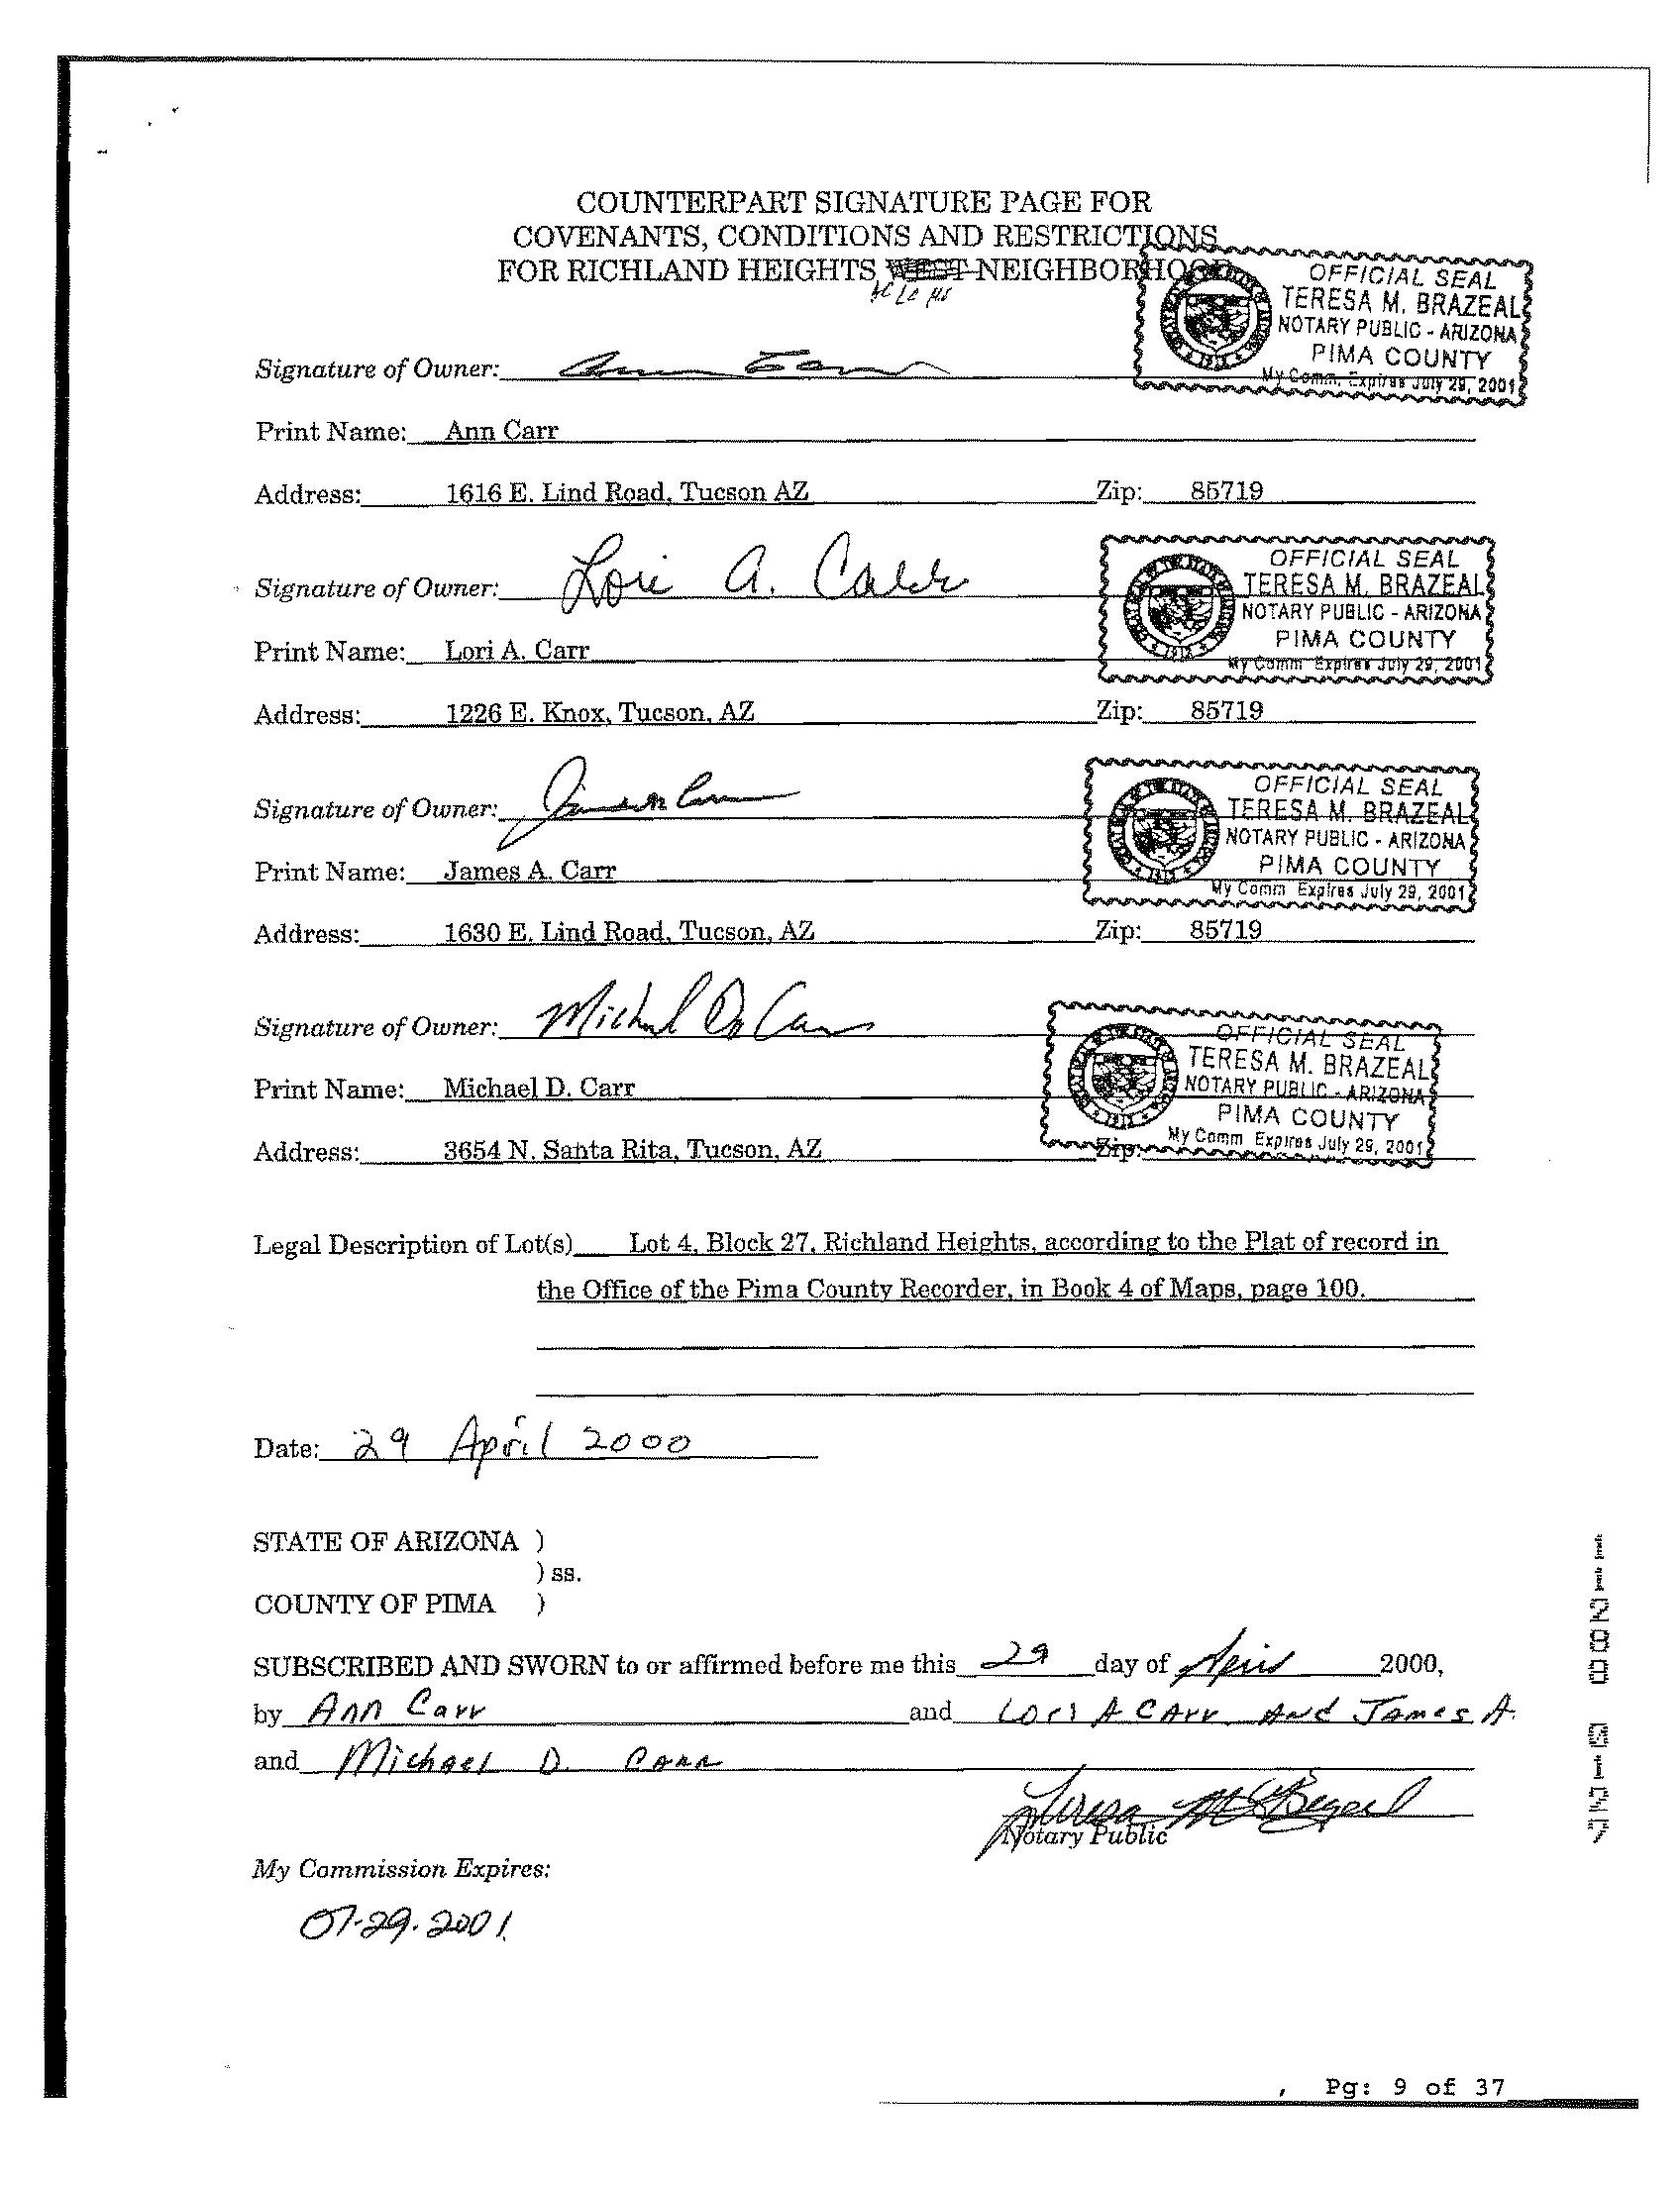 COUNTERPART SIGNATURE PAGE FOR
COVENANTS, CONDITIONS AND RESTRICTIONS
FOR RICHLAND HEIGHTS WEST NEIGHBORHOOD
OFFICIAL SEAL
TERESA M. BRAZEAL
NOTARY PUBLIC - ARIZONA
PIMA COUNTY
My Comm. Expires July 29, 2001
Signature of Owner: Ann Carr
Print Name: Ann Carr
Address: 1616 E. Lind Road, Tucson AZ Zip: 85719
OFFICIAL SEAL
TERESA M. BRAZEAL
NOTARY PUBLIC - ARIZONA
PIMA COUNTY
My Comm Expires July 29, 2001
Signature of Owner: Lori A. Carr
Print Name: Lori A. Carr
Address: 1226 E. Knox, Tucson, AZ Zip: 85719
OFFICIAL SEAL
TERESA M. BRAZEAL
NOTARY PUBLIC - ARIZONA
PIMA COUNTY
My Comm Expires July 29, 2001
Signature of Owner:
Print Name: James A. Carr
Address: 1630 E. Lind Road, Tucson, AZ Zip: 85719
OFFICIAL SEAL
TERESA M. BRAZEAL
NOTARY PUBLIC - ARIZONA
PIMA COUNTY
My Comm Expires July 29, 2001
Signature of Owner: Michael D. Carr
Print Name: Michael D. Carr
Address: 3654 N. Santa Rita, Tucson, AZ Zip:
Legal Description of Lot(s) Lot 4, Block 27, Richland Heights, according to the Plat of record in
the Office of the Pima County Recorder, in Book 4 of Maps, page 100.
Date: 29 April 2000
STATE OF ARIZONA )
) ss.
COUNTY OF PIMA )
SUBSCRIBED AND SWORN to or affirmed before me this 29 day of April 2000,
by Ann Carr and Lori A Carr and James A.
and Michael D. Carr
Notary Public
My Commission Expires:
07-29-2001
Pg: 9 of 37